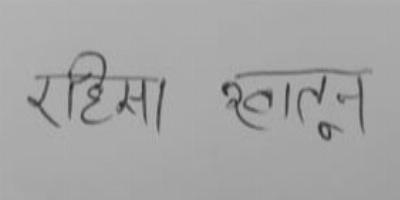 रहिमा खातून